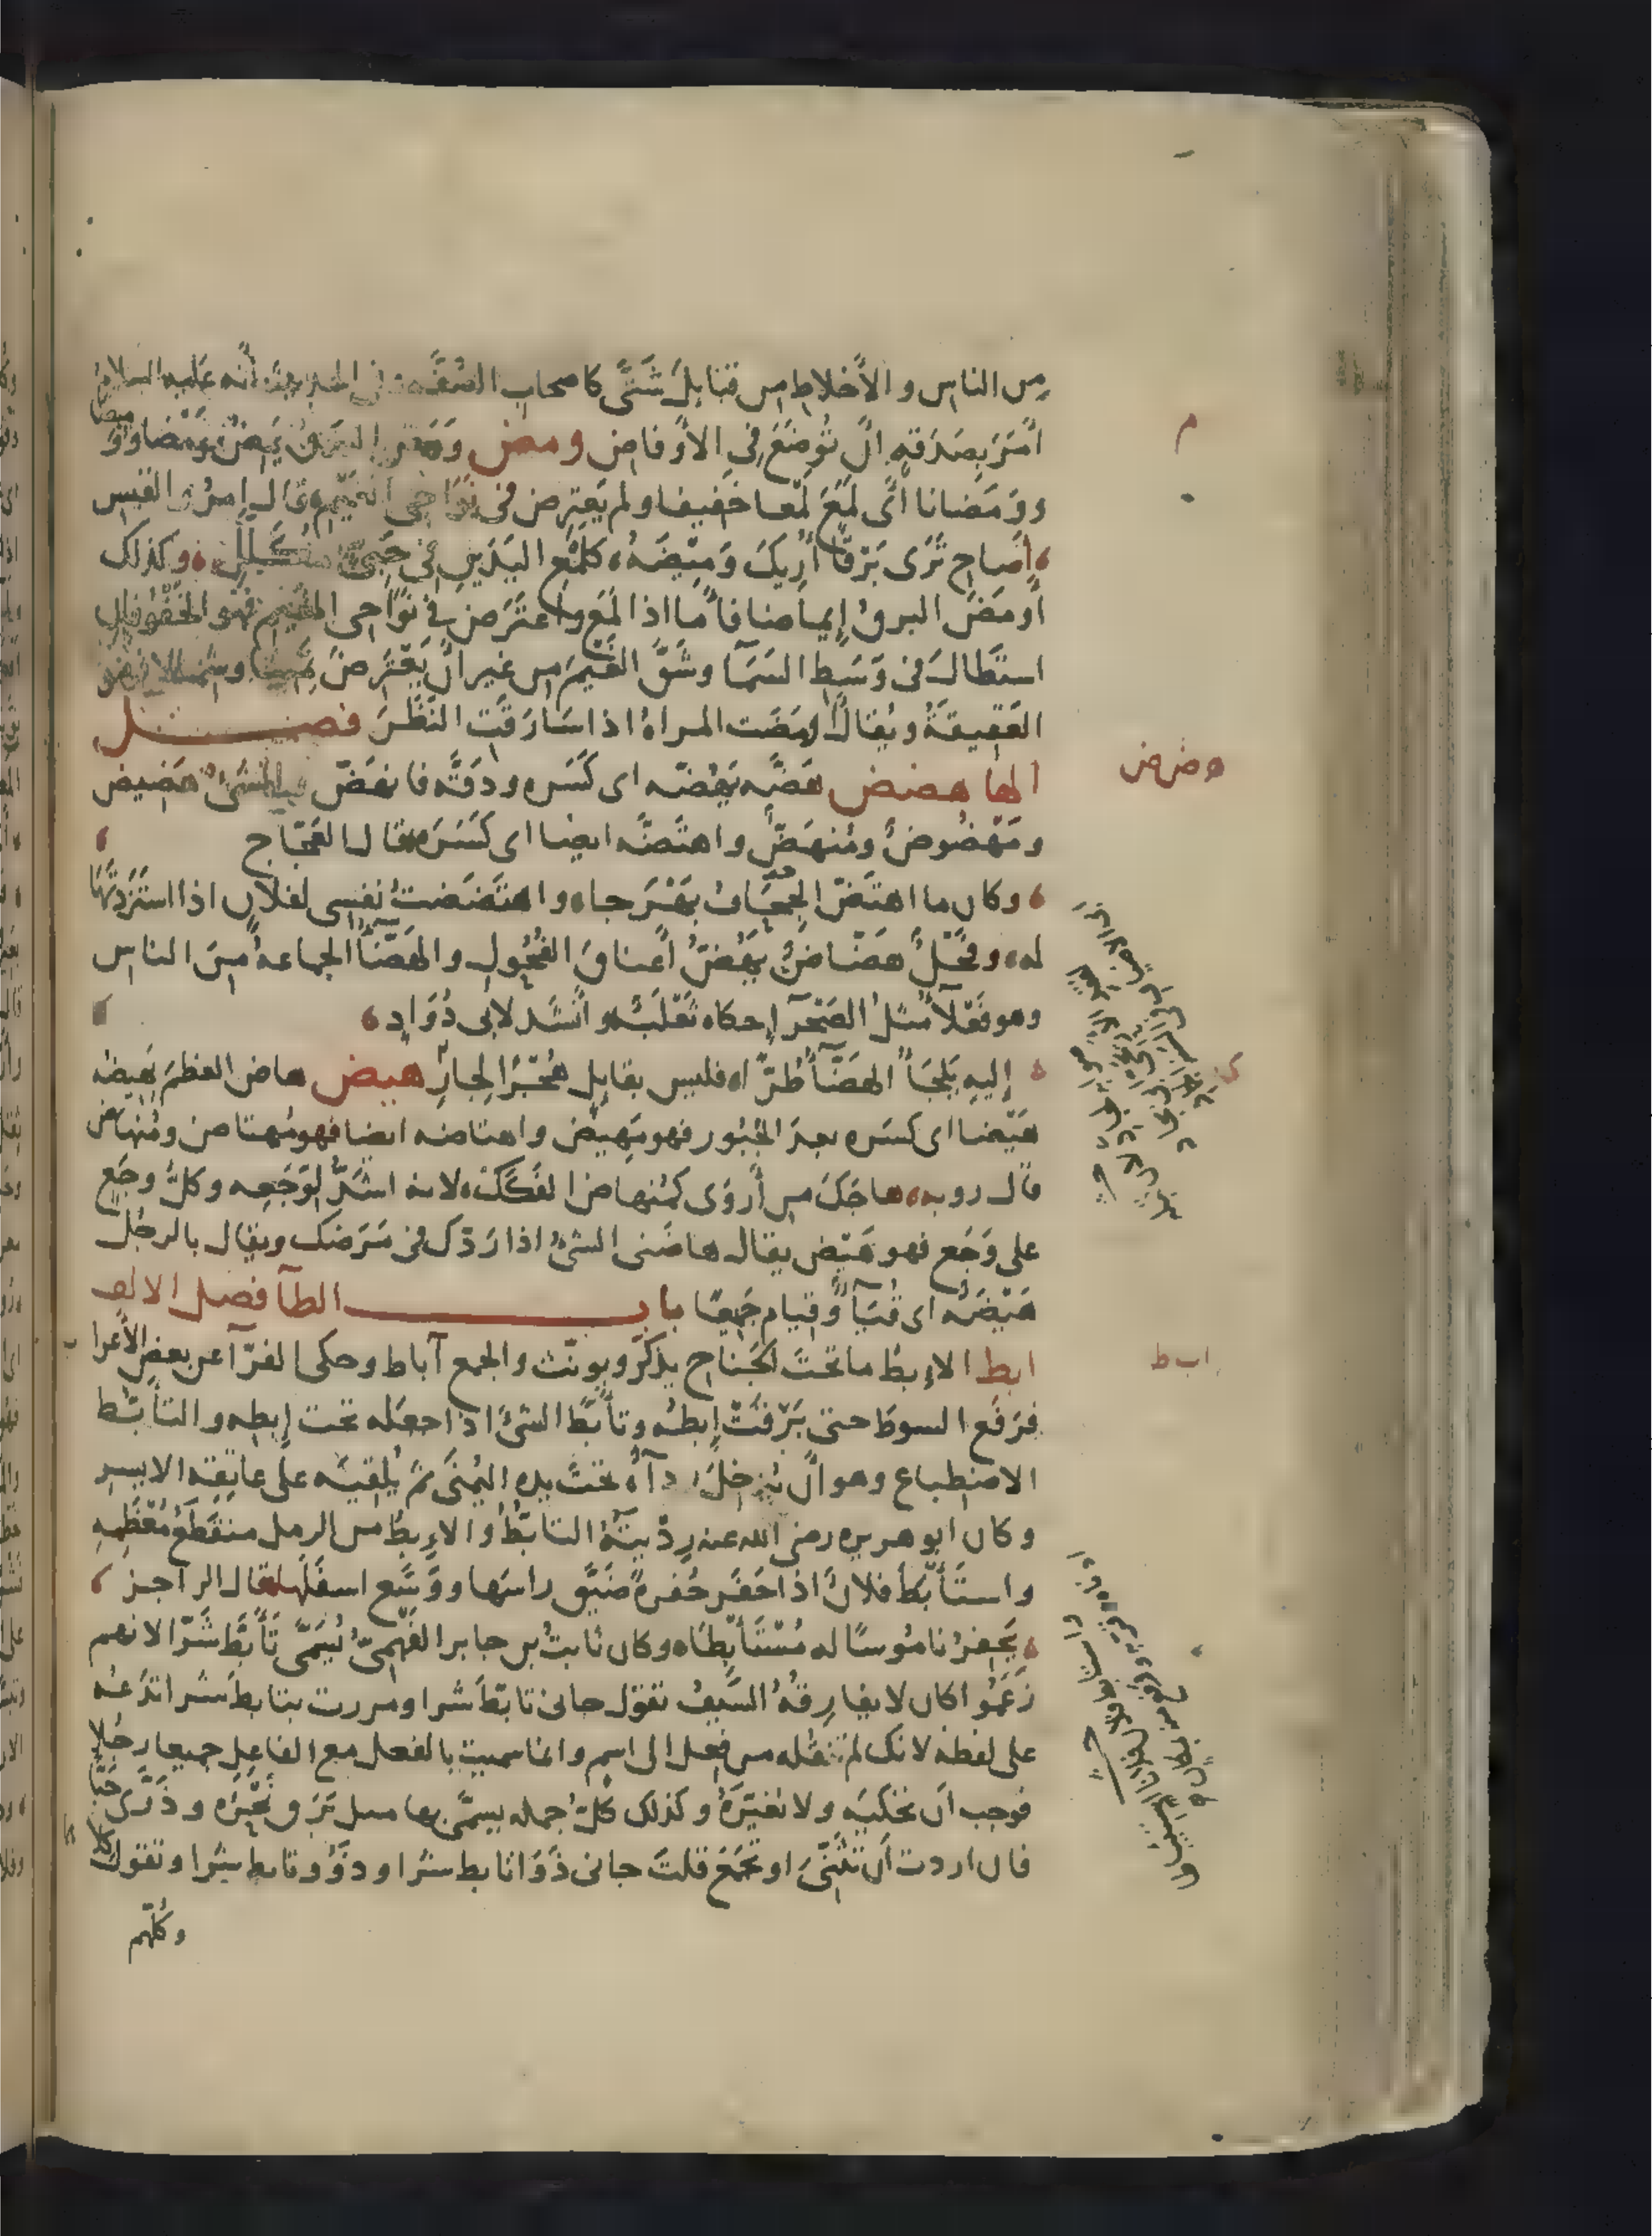 مِن الناس والأخلاط من قبائلَ شَتَّى كاصحاب الصُفَّة وفى الحديث أنّه عليه السلام
أمَرَ بصَدَقةٍ انْ تُوضَعَ فى الأوفاض ومض وَمَض البَرقُ يَمِضُ وَمْضا ووَميضا
ووَمَضانا أى لمَعَ لَمْعا خَفيفا ولم يَعترِض فى نَوَاحى الغَيْم قال امرؤ القيس
أصَاحِ تَرَى بَرْقًا أُرِيكَ وَمِيْضَهُ كلَمْعِ اليَدَينِ فى حَبِىٍّ مُكَلَّلِ وكذلك
أومَضَ البرقُ إيماضا فأمّا اذا لمَع واعتَرَض فى نَوَاحى الغَيم فهو الخَفْوُ فان
استَطالَ فى وَسَطِ السَمَآ وشَقَّ الغَيْمَ من غير انْ يَعْتَرضَ يَمينا وشمالا فهو
العَقِيقَةُ ويُقالُ اومَضَت المراةُ اذا سَارَقَتِ النَظَرَ فصل
الها هضض هَضَّه يَهُضّه اى كَسَره ودَقَّه فانهَضَّ فالشئُ هَضيض
ومَهْضُوضٌ ومُنهَضٌّ واهتَضَّه ايضا اى كَسَرَه قال العَجّاج
وكان ما اهتَضّ الجِحَافُ بَهْرَجا واهتَضَضتُ نفسى لفلان اذا استَزَدتَّها
له وفَحْلٌ هَضّاضٌ يَهُضُّ أعناقَ الفُحُولِ والهَضّآ الجماعةُ مِنَ الناس
وهو فَعْلآ مثلُ الصَحْرآ حكاه ثَعْلَبٌ وانْشَد لابى دُوَادٍ
إليهِ يَلجَأُ الهَضّآ طُرًّا فليس بقايِلٍ هُجْرًا لِجارِ هيض هاضَ العظمَ يَهيضُه
هَيْضا اى كسَره بعدَ الجُبُور فهو مَهيضٌ واهتاضه ايضا فهو مُهتاض ومُنهاض
قال روبه هاجَكَ من أروَى كمُنهاضِ الفَكَكْ لانه اشَدُّ لوَجَعِه وكلُّ وجَعٍ
على وَجَعٍ فهو هَيْض يقال هاضَنى الشئُ اذا رَدّك فى مَرَضك ويقال بالرجُل
هَيْضَةٌ اى قُيَآءٌ وقيام جَميعًا باب الطآ فصل الالف
ابط الإبطُ ما تحتَ الجَناح يذكّر ويونّث والجمع آباط وحكى الفرّآ عن بعض الأعراب
فرَفَع السوطَ حتى بَرَقَتْ إبطُه وتأبَّطَ الشئَ اذا جعَله تحت إبطِه والتأبُّط
الاضطباع وهو أنْ يُدخِلَ رِدآءَه تحتَ يدِه اليُمنَى ثم يُلقيَه على عاتِقِه الايسر
وكان ابو هريره رضى الله عنه رِدْيَتُهُ التابُّطُ والإبطُ من الرمل منقَطَعُ مُعْظَمِه
واستَأبَطَ فلانٌ اذا حَفَر حُفرةً ضَيَّق راسَها ووَسَّع اسفَلَها قال الراجز
يَحفِرُ نامُوسًا له مُسْتَأبِطَا وكان ثابتُ بن جابر الفَهْمِىُّ يُسَمَّى تَأَبَّطَ شَرّا لانهم
زَعَمُوا كان لا يفارِقُهُ السَّيفُ تقول جانى تابّطَ شرا ومررت بتابطَ شرا تَدَعُه
على لفظه لانك لم تنقُله من فِعل الى اسم وانما سميتَ بالفعل مع الفاعِل جميعا رجُلا
فوجب أن تحكيَه ولا تغيّرَهُ وكذلك كلُّ جمله يسمَّى بها مثل بَرَق نَحْرُه وذَرَّى حَبّا
فان اردت أن تثَنِّىَ او تَجمَعَ قلتَ جانى ذَوَا تابط شرا وذَوُو تابط شرا وتقول كلاهما
وكلّهم
م
هضض
ابط